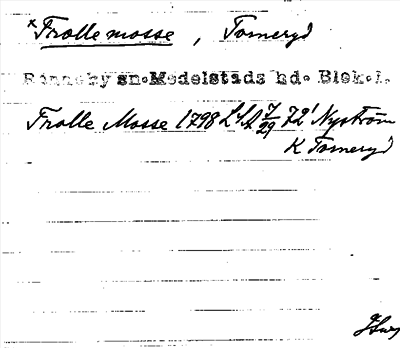 ×Frollemosse, Torneryd
Ronneby sn. Medelstads hd. Blek.l.
Frolle Mosse 1798 LSA 7/29 72' Nyström
K Torneryd